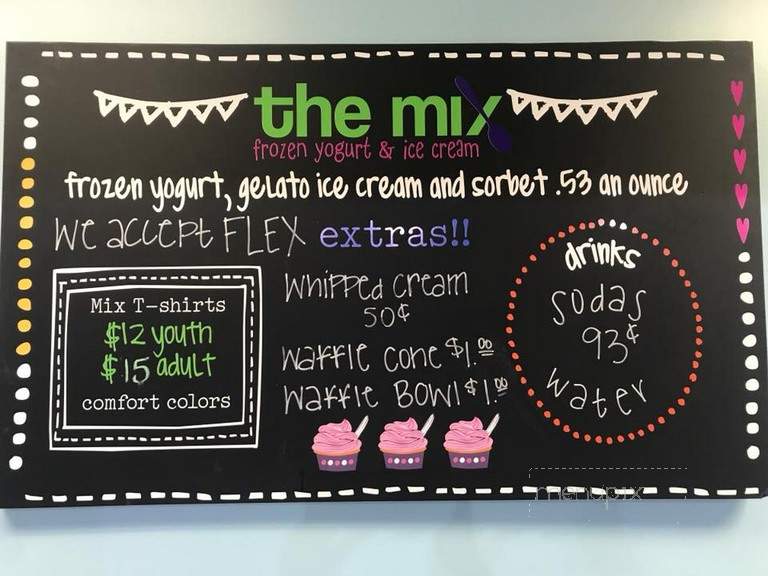 the mix
frozen yogurt & ice cream
frozen yogurt, gelato ice cream and sorbet .53 an ounce
We accept FLEX extras!!
Mix T-shirts
$12 youth
$15 adult
comfort colors
Whipped Cream
50¢
Waffle Cone $1.00
Waffle Bowl $1.00
drinks
sodas
93¢
water
menupix